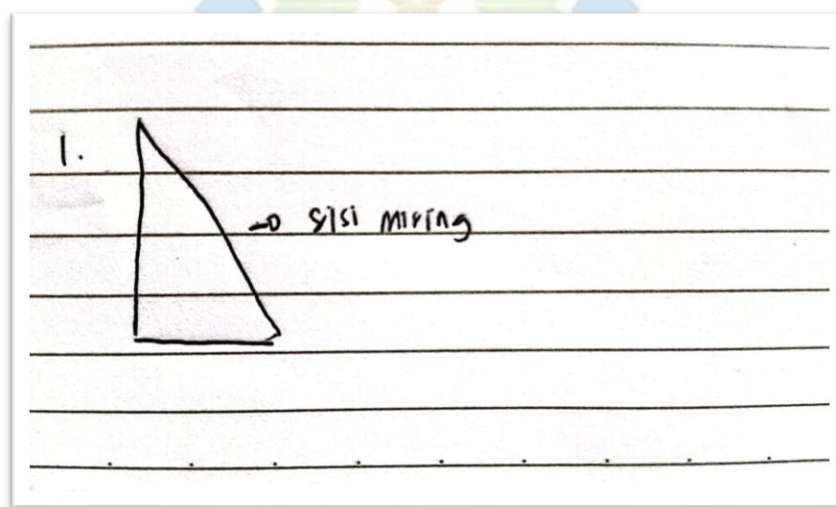 1.
→ sisi miring